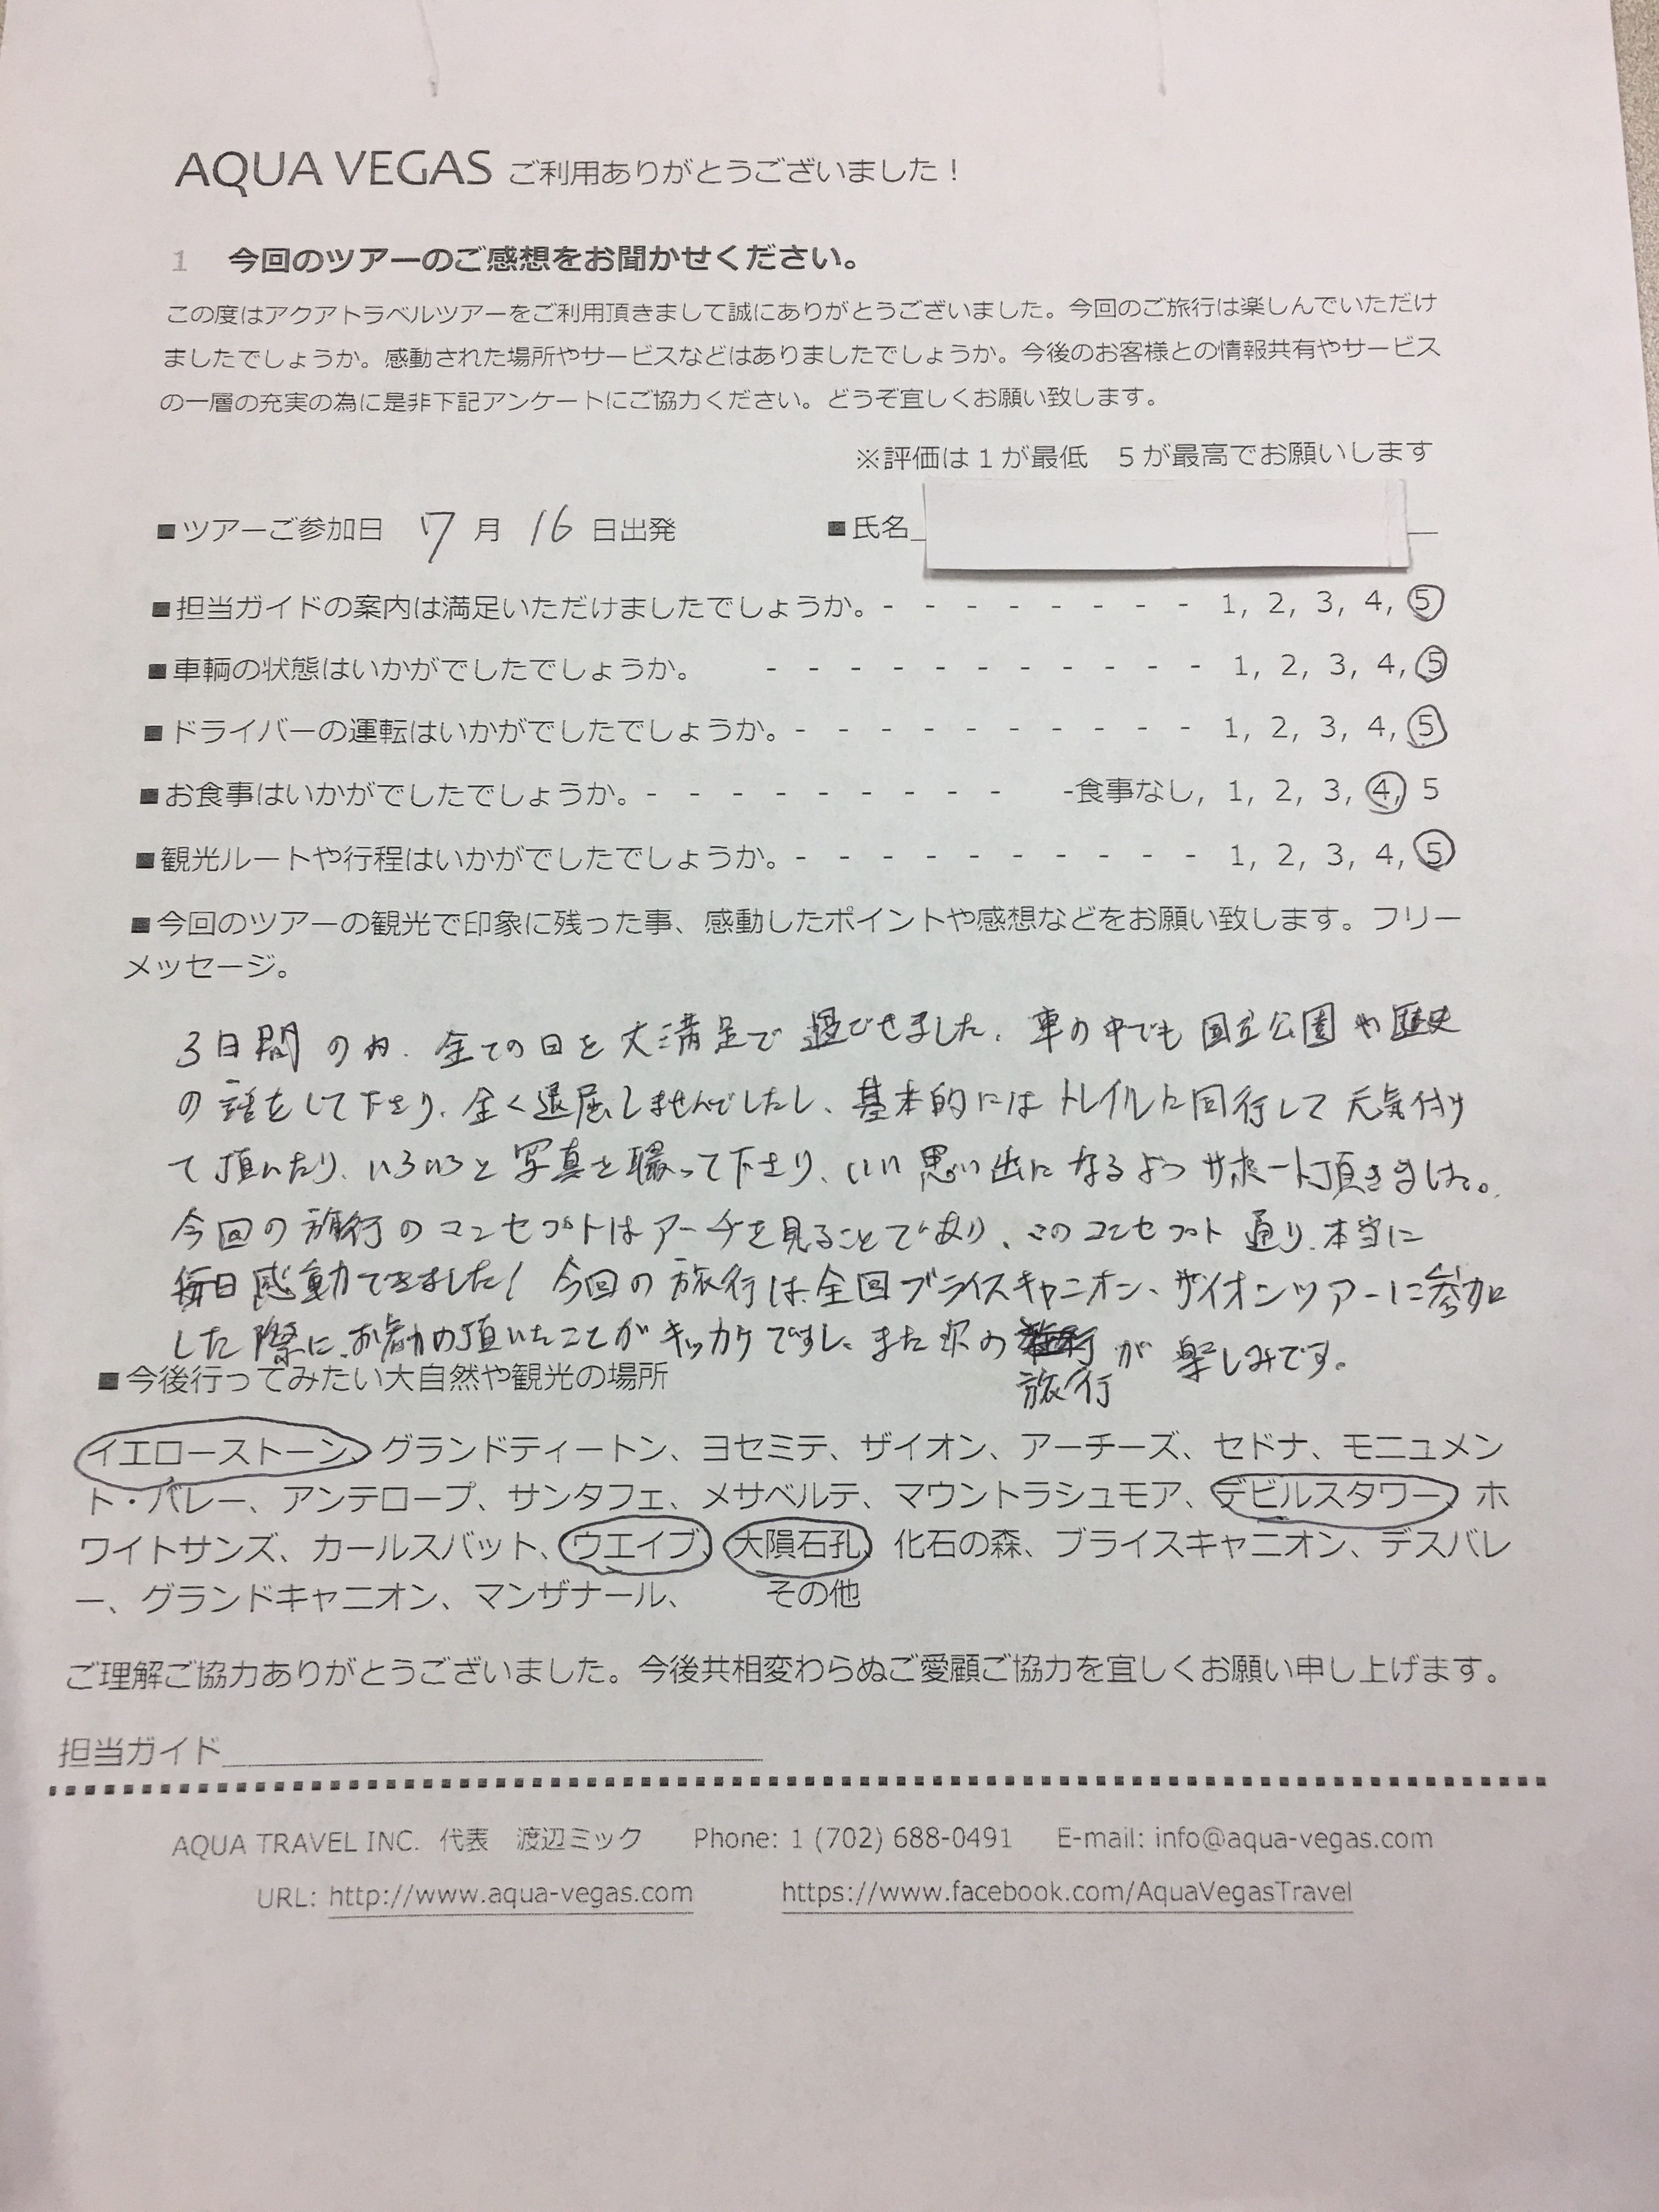 AQUA VEGAS ご利用ありがとうございました！
1 今回のツアーのご感想をお聞かせください。
この度はアクアトラベルツアーをご利用頂きまして誠にありがとうございました。今回のご旅行は楽しんでいただけ
ましたでしょうか。感動された場所やサービスなどはありましたでしょうか。今後のお客様との情報共有やサービス
の一層の充実の為に是非下記アンケートにご協力ください。どうぞ宜しくお願い致します。
※評価は１が最低　５が最高でお願いします
■ツアーご参加日 7 月 16 日出発 ■氏名
■担当ガイドの案内は満足いただけましたでしょうか。- - - - - - - - 1, 2, 3, 4, 5
■車輌の状態はいかがでしたでしょうか。 - - - - - - - - - - - 1, 2, 3, 4, 5
■ドライバーの運転はいかがでしたでしょうか。- - - - - - - - - - 1, 2, 3, 4, 5
■お食事はいかがでしたでしょうか。- - - - - - - - - -食事なし, 1, 2, 3, 4, 5
■観光ルートや行程はいかがでしたでしょうか。- - - - - - - - - - 1, 2, 3, 4, 5
■今回のツアーの観光で印象に残った事、感動したポイントや感想などをお願い致します。フリー
メッセージ。
3日間の内、全ての日を大満足で過ごせました。車の中でも国立公園や歴史
の話をして下さり、全く退屈しませんでしたし、基本的にはトレイルに同行して元気付け
て頂いたり、いろいろと写真を撮って下さり、いい思い出になるようサポート頂きました。
今回の旅行のコンセプトはアーチを見ることであり、このコンセプト通り、本当に
毎日感動できました！今回の旅行は全回ブライスキャニオン、ザイオンツアーに参加
した際に、お勧め頂いたことがキッカケですし、また次の が楽しみです。
旅行
■今後行ってみたい大自然や観光の場所
イエローストーン、グランドティートン、ヨセミテ、ザイオン、アーチーズ、セドナ、モニュメン
ト・バレー、アンテロープ、サンタフェ、メサベルテ、マウントラシュモア、デビルスタワー、ホ
ワイトサンズ、カールスバット、ウエイブ、大隕石孔、化石の森、ブライスキャニオン、デスバレ
ー、グランドキャニオン、マンザナール、 その他
ご理解ご協力ありがとうございました。今後共相変わらぬご愛顧ご協力を宜しくお願い申し上げます。
担当ガイド
AQUA TRAVEL INC. 代表 渡辺ミック Phone: 1 (702) 688-0491 E-mail: info@aqua-vegas.com
URL: http://www.aqua-vegas.com https://www.facebook.com/AquaVegasTravel